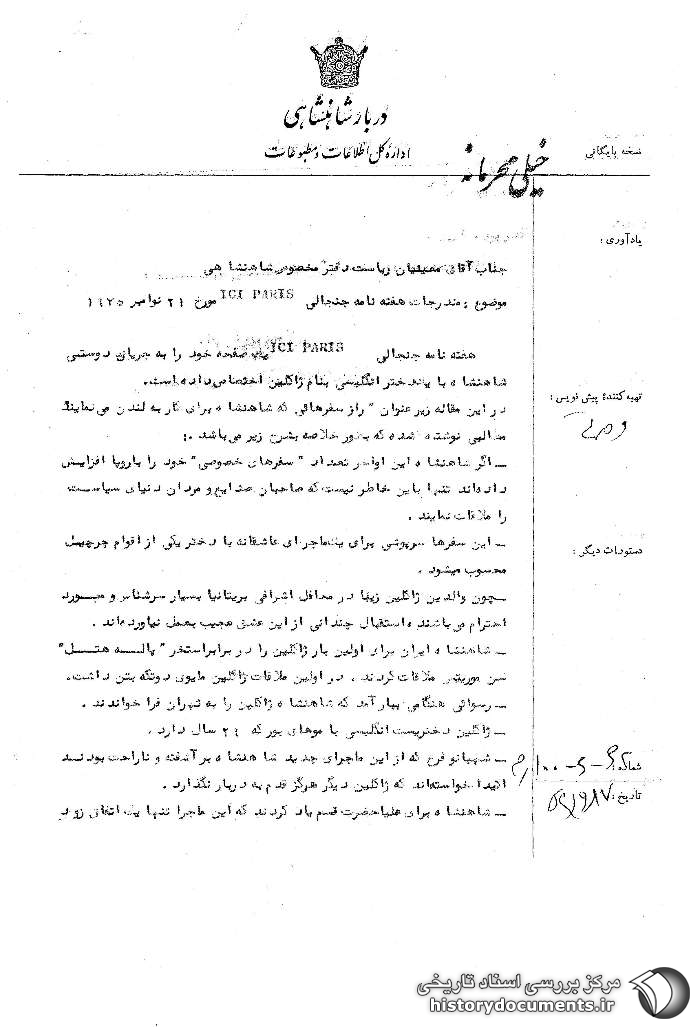 دربار شاهنشاهی
اداره کل اطلاعات و مطبوعات
نسخه بایگانی
خیلی محرمانه
یادآوری :
جناب آقای معینیان ریاست دفتر مخصوص شاهنشاهی
موضوع : مندرجات هفته نامه جنجالی ICI PARIS مورخ ۲۱ نوامبر ۱۹۷۵
هفته نامه جنجالی ICI PARIS یک صفحه خود را به جریان دوستی
شاهنشاه با یک دختر انگلیسی بنام ژاکلین اختصاص داده است.
تهیه کنندهٔ پیش نویس :
در این مقاله زیر عنوان " راز سفرهائی که شاهنشاه برای کار به لندن می نمایند
مطالبی نوشته شده که بطور خلاصه بشرح زیر می باشد .:
ـ اگر شاهنشاه این اواخر تعداد " سفرهای خصوصی" خود را باروپا افزایش
داده اند تنها باین خاطر نیست که صاحبان صنایع و مردان دنیای سیاست
را ملاقات نمایند .
ـ این سفرها سرپوشی برای یک ماجرای عاشقانه با دختر یکی از اقوام چرچیل
محسوب میشود .
دستورات دیگر :
ـ چون والدین ژاکلین زیبا در محافل اشرافی بریتانیا بسیار سرشناس و مورد
احترام می باشند استقبال چندانی از این عشق عجیب بعمل نیاورده اند .
ـ شاهنشاه ایران برای اولین بار ژاکلین را در برابر استخر " پالسه هتل"
سن موریتس ملاقات کردند . در اولین ملاقات ژاکلین مایوی دوتکه بتن داشت.
ـ رسوائی هنگامی ببار آمد که شاهنشاه ژاکلین را به تهران فرا خواندند .
ـ ژاکلین دختریست انگلیسی با موهای بور که ۲۱ سال دارد .
ـ شهبانو فرح که از این ماجرای جدید شاهنشاه بر آشفته و ناراحت بودند
اکیدا خواسته اند که ژاکلین دیگر هرگز قدم به دربار نگذارد .
ـ شاهنشاه برای علیاحضرت قسم یاد کردند که این ماجرا تنها یک اتفاق زود
شماره :
تاریخ :
مرکز بررسی اسناد تاریخی
historydocuments.ir